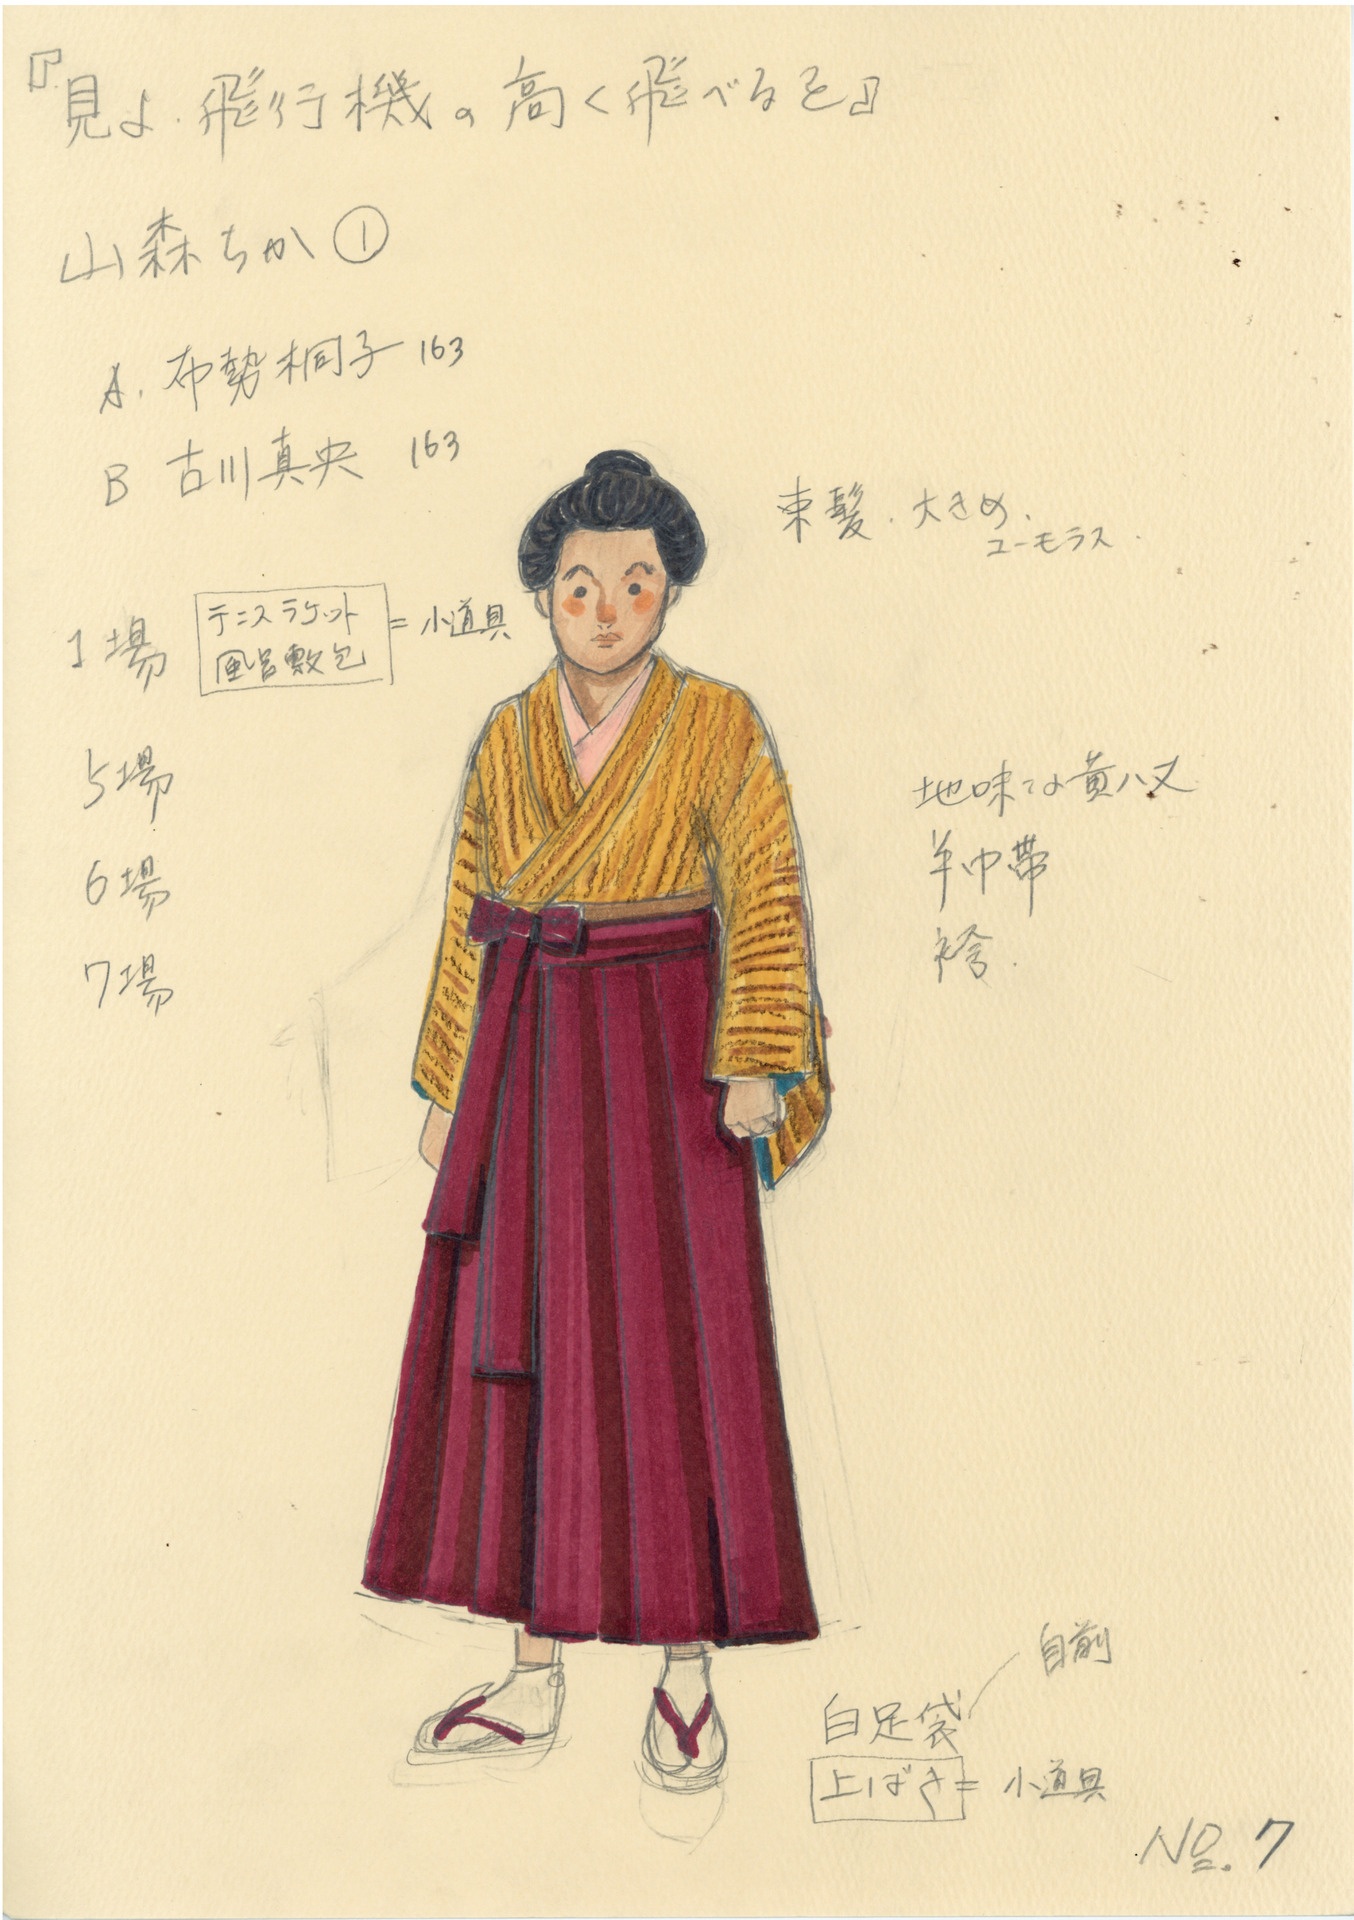 『見よ、飛行機の高く飛べるを』
山森ちか ①
A. 布勢桐子 163
B 古川真央 163
束髪、大きめ、
ユーモラス.
1場
テニスラケット
風呂敷包
= 小道具
5場
6場
7場
地味な黄八丈
半巾帯
袴.
自前
白足袋
上ばき = 小道具
No. 7